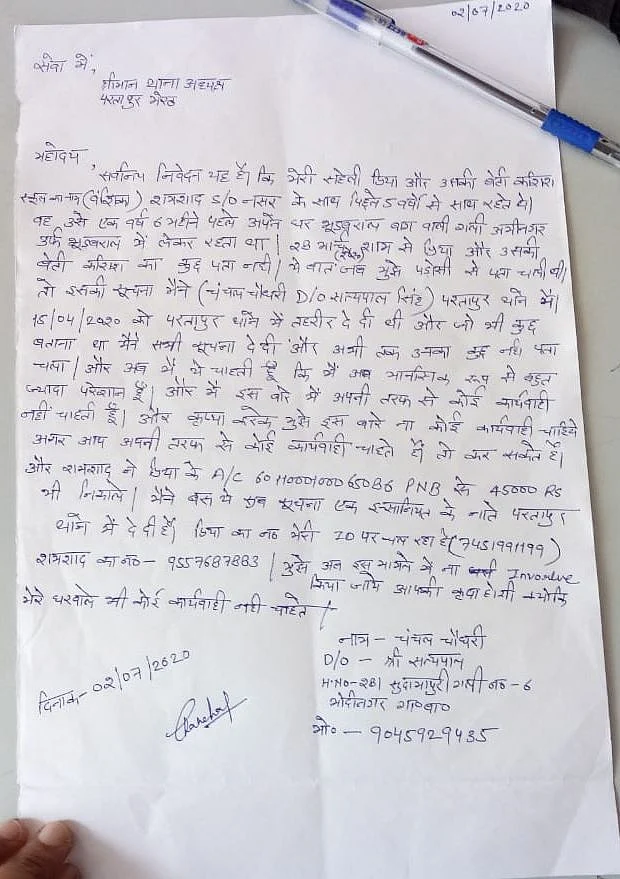 02/07/2020
सेवा में,
श्रीमान थाना अध्यक्ष
परतापुर मेरठ
महोदय,
सविनय निवेदन यह है। कि मेरी सहेली प्रिया और उसकी बेटी कशिश
स्कूल का नाम (वंशिका) शमशाद S/O नसर के साथ पिछले 5 वर्षो से साथ रहते थे।
वह उसे एक वर्ष 6 महीने पहले अपने घर भूडबराल बाग वाली गली
उर्फ भूडबराल में लेकर रहता था। 28 मार्च शाम से प्रिया और उसकी
बेटी कशिश का कुछ पता नही। ये बात जब मुझे पडोसी से पता चली थी।
तो इसकी सूचना मैने (चंचल चौधरी D/O सत्यपाल सिंह) परतापुर थाने में।
15/04/2020 को परतापुर थाने में तहरीर दे दी थी और जो भी कुछ
बताना था मैने सभी सूचना दे दी और अभी तक उनका कुछ नही पता
चला। और अब मैं ये चाहती हूँ कि मैं अब मानसिक रूप से बहुत
ज्यादा परेशान हूँ। और मैं इस बारे में अपनी तरफ से कोई कार्यवाही
नहीं चाहती हूँ। और कृप्या करके मुझे इस बारे ना कोई कार्यवाही चाहिये
अगर आप अपनी तरफ से कोई कार्यवाही चाहते हैं तो कर सकते हैं।
और शमशाद ने प्रिया के A/C PNB से 45000 RS
भी निकाले। मैने बस ये सब सूचना एक इन्सानियत के नाते परतापुर
थाने में दे दी है। प्रिया का न० मेरी ID पर चल रहा है (7451991199)
शमशाद का न० - 9557687883 | मुझे अब इस मामले में ना Involve
किया जाये आपकी कृपा होगी क्योकि
मेरे घरवाले भी कोई कार्यवाही नही चाहते।
नाम - चंचल चौधरी
D/O - श्री सत्यपाल
H.NO-281 सुदामापुरी गली न० - 6
मोदीनगर गा०बा०
मो० - 9045929435
दिनाक - 02/07/2020